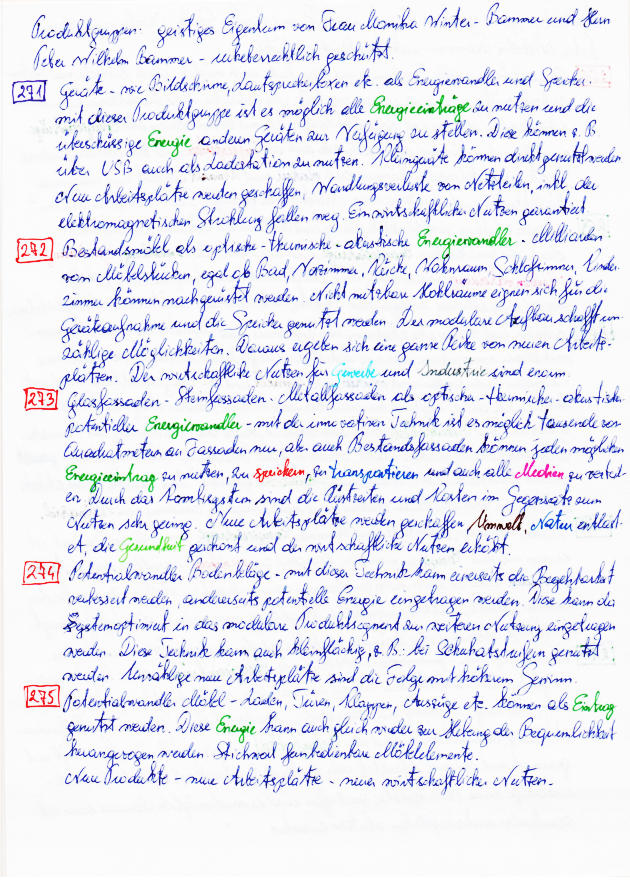 Produktgruppen: geistiges Eigentum von Frau Monika Winter-Bammer und Herrn
Peter Wilhelm Bammer - urheberrechtlich geschützt.
271 Geräte - wie Bildschirme, Lautsprecherboxen etc. als Energiewandler und Speicher
mit dieser Produktgruppe ist es möglich alle Energieeinträge zu nutzen und die
überschüssige Energie anderen Geräten zur Verfügung zu stellen. Diese können z. B
über USB auch als Ladestation zu nutzen. Kleingeräte können direkt genutzt werden
Neue Arbeitsplätze werden geschaffen, Wandlungsverluste von Netzteilen, inkl. der
elektromagnetischen Strahlung fallen weg. Ein wirtschaftlicher Nutzen garantiert
272 Bestandsmöbel als optische-thermische-akustische Energiewandler. Milliarden
von Möbelstücken, egal ob Bad, Vorzimmer, Küche, Wohnraum, Schlafzimmer, Kinder-
zimmer können nachgerüstet werden. Nicht nutzbare Hohlräume eignen sich für die
Geräteaufnahme und die Speicher genutzt werden. Der modulare Aufbau schafft un-
zählige Möglichkeiten. Daraus ergeben sich eine ganze Reihe von neuen Arbeits-
plätzen. Der wirtschaftliche Nutzen für Gewerbe und Industrie sind enorm.
273 Glasfassaden - Steinfassaden - Metallfassaden als optischer-thermischer-akustischer
potentieller Energiewandler - mit der innovativen Technik ist es möglich tausende von
Quadratmetern an Fassaden neu, aber auch Bestandsfassaden können jeden möglichen
Energieeintrag zu nutzen, zu speichern, zu transportieren und auch alle Medien zu verteil-
en. Durch das Kombisystem sind die Rüstzeiten und Kosten im Gegensatz zum
Nutzen sehr gering. Neue Arbeitsplätze werden geschaffen Umwelt, Natur entlast-
et, die Gesundheit geschont und der wirtschaftliche Nutzen erhöht.
274 Potentialwandler Bodenbeläge - mit dieser Technik kann einerseits die Begehbarkeit
verbessert werden, andererseits potentielle Energie eingetragen werden. Diese kann da
Systemoptimiert in das modulare Produktsegment zur weiteren Nutzung eingetragen
werden. Diese Technik kann auch kleinflächig, z. B.: bei Schuhabstreifern genutzt
werden. Unzählige neue Arbeitsplätze sind die Folge mit hohem Gewinn.
275 Potentialwandler Möbel - Laden, Türen, Klappen, Auszüge etc. können als Eintrag
genutzt werden. Diese Energie kann auch gleich wieder zur Hebung der Bequemlichkeit
herangezogen werden. Stichwort funkbedienbare Möbelelemente.
Neue Produkte - neue Arbeitsplätze - neuer wirtschaftlicher Nutzen.